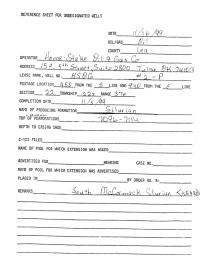 REFERENCE SHEET FOR UNDESIGNATED WELLS
DATE 11/16/99
OIL/GAS Oil
COUNTY Lea
OPERATOR Home-Stake Oil & Gas Co
ADDRESS 15 E. 5th Street, Suite 2800 Tulsa OK
LEASE NAME, WELL NO. # 2 - P
FOOTAGE LOCATION FROM THE S LINE AND FROM THE E LINE
SECTION 22 TOWNSHIP 22s RANGE 37e
COMPLETION DATE 11/8/99
NAME OF PRODUCING FORMATION Silurian
TOP OF PERFORATIONS 7096-7114
DEPTH TO CASING SHOE
C-123 FILED
NAME OF POOL FOR WHICH EXTENSION WAS ASKED
ADVERTISED FOR HEARING CASE NO.
NAME OF POOL FOR WHICH EXTENSION WAS ADVERTISED
PLACED IN BY ORDER NO. R-
REMARKS South McCormack Silurian